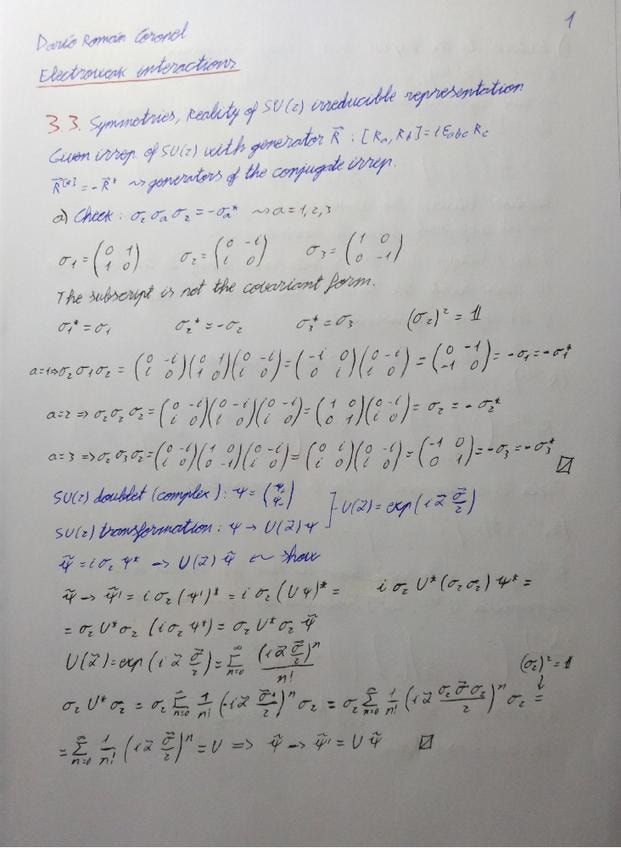 1
Darío Román Coronel
Electroweak interactions
3.3. Symmetries, Reality of SU(2) irreducible representation
Given irrep. of SU(2) with generator R⃗ : [Ra, Rb] = i εabc Rc
R⃗^[*] = -R⃗* ⇝ generators of the conjugate irrep.
a) Check: σ₂ σa σ₂ = -σa* ⇝ a=1,2,3
σ₁ = (0 1; 1 0) σ₂ = (0 -i; i 0) σ₃ = (1 0; 0 -1)
The subscript is not the covariant form.
σ₁* = σ₁ σ₂* = -σ₂ σ₃* = σ₃ (σ₂)² = 𝟙
a=1 ⇒ σ₂σ₁σ₂ = (0 -i; i 0)(0 1; 1 0)(0 -i; i 0) = (-i 0; 0 i)(0 -i; i 0) = (0 -1; -1 0) = -σ₁ = -σ₁*
a=2 ⇒ σ₂σ₂σ₂ = (0 -i; i 0)(0 -i; i 0)(0 -i; i 0) = (1 0; 0 1)(0 -i; i 0) = σ₂ = -σ₂*
a=3 ⇒ σ₂σ₃σ₂ = (0 -i; i 0)(1 0; 0 -1)(0 -i; i 0) = (0 i; i 0)(0 -i; i 0) = (-1 0; 0 1) = -σ₃ = -σ₃*
SU(2) doublet (complex): ψ =
SU(2) transformation: ψ → U(α⃗)ψ ] U(α⃗) = exp(i α⃗ σ⃗/2)
ψ̃ = iσ₂ψ* → U(α⃗)ψ̃ ⇜ show
ψ̃ → ψ̃' = iσ₂(ψ')* = iσ₂(Uψ)* = iσ₂U*(σ₂σ₂)ψ* =
= σ₂U*σ₂(iσ₂ψ*) = σ₂U*σ₂ψ̃
U(α⃗) = exp(i α⃗ σ⃗/2) = Σ_{n=0}^∞ (i α⃗ σ⃗/2)ⁿ/n!
(σ₂)² = 𝟙
σ₂U*σ₂ = σ₂ Σ_{n=0}^∞ 1/n! (-i α⃗ σ⃗*/2)ⁿ σ₂ = σ₂ Σ_{n=0}^∞ 1/n! (i α⃗ σ₂σ⃗σ₂/2)ⁿ σ₂ =
= Σ_{n=0}^∞ 1/n! (i α⃗ σ⃗/2)ⁿ = U ⇒ ψ̃ → ψ̃' = Uψ̃